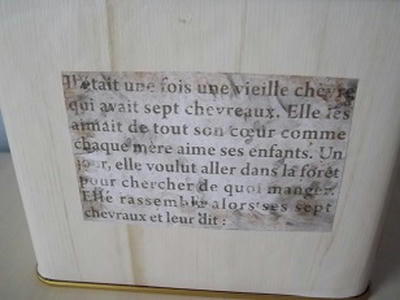 Il était une fois une vieille chèvre
qui avait sept chevreaux. Elle les
aimait de tout son cœur comme
chaque mère aime ses enfants. Un
jour, elle voulut aller dans la forêt
pour chercher de quoi manger.
Elle rassemble alors ses sept
chevraux et leur dit :